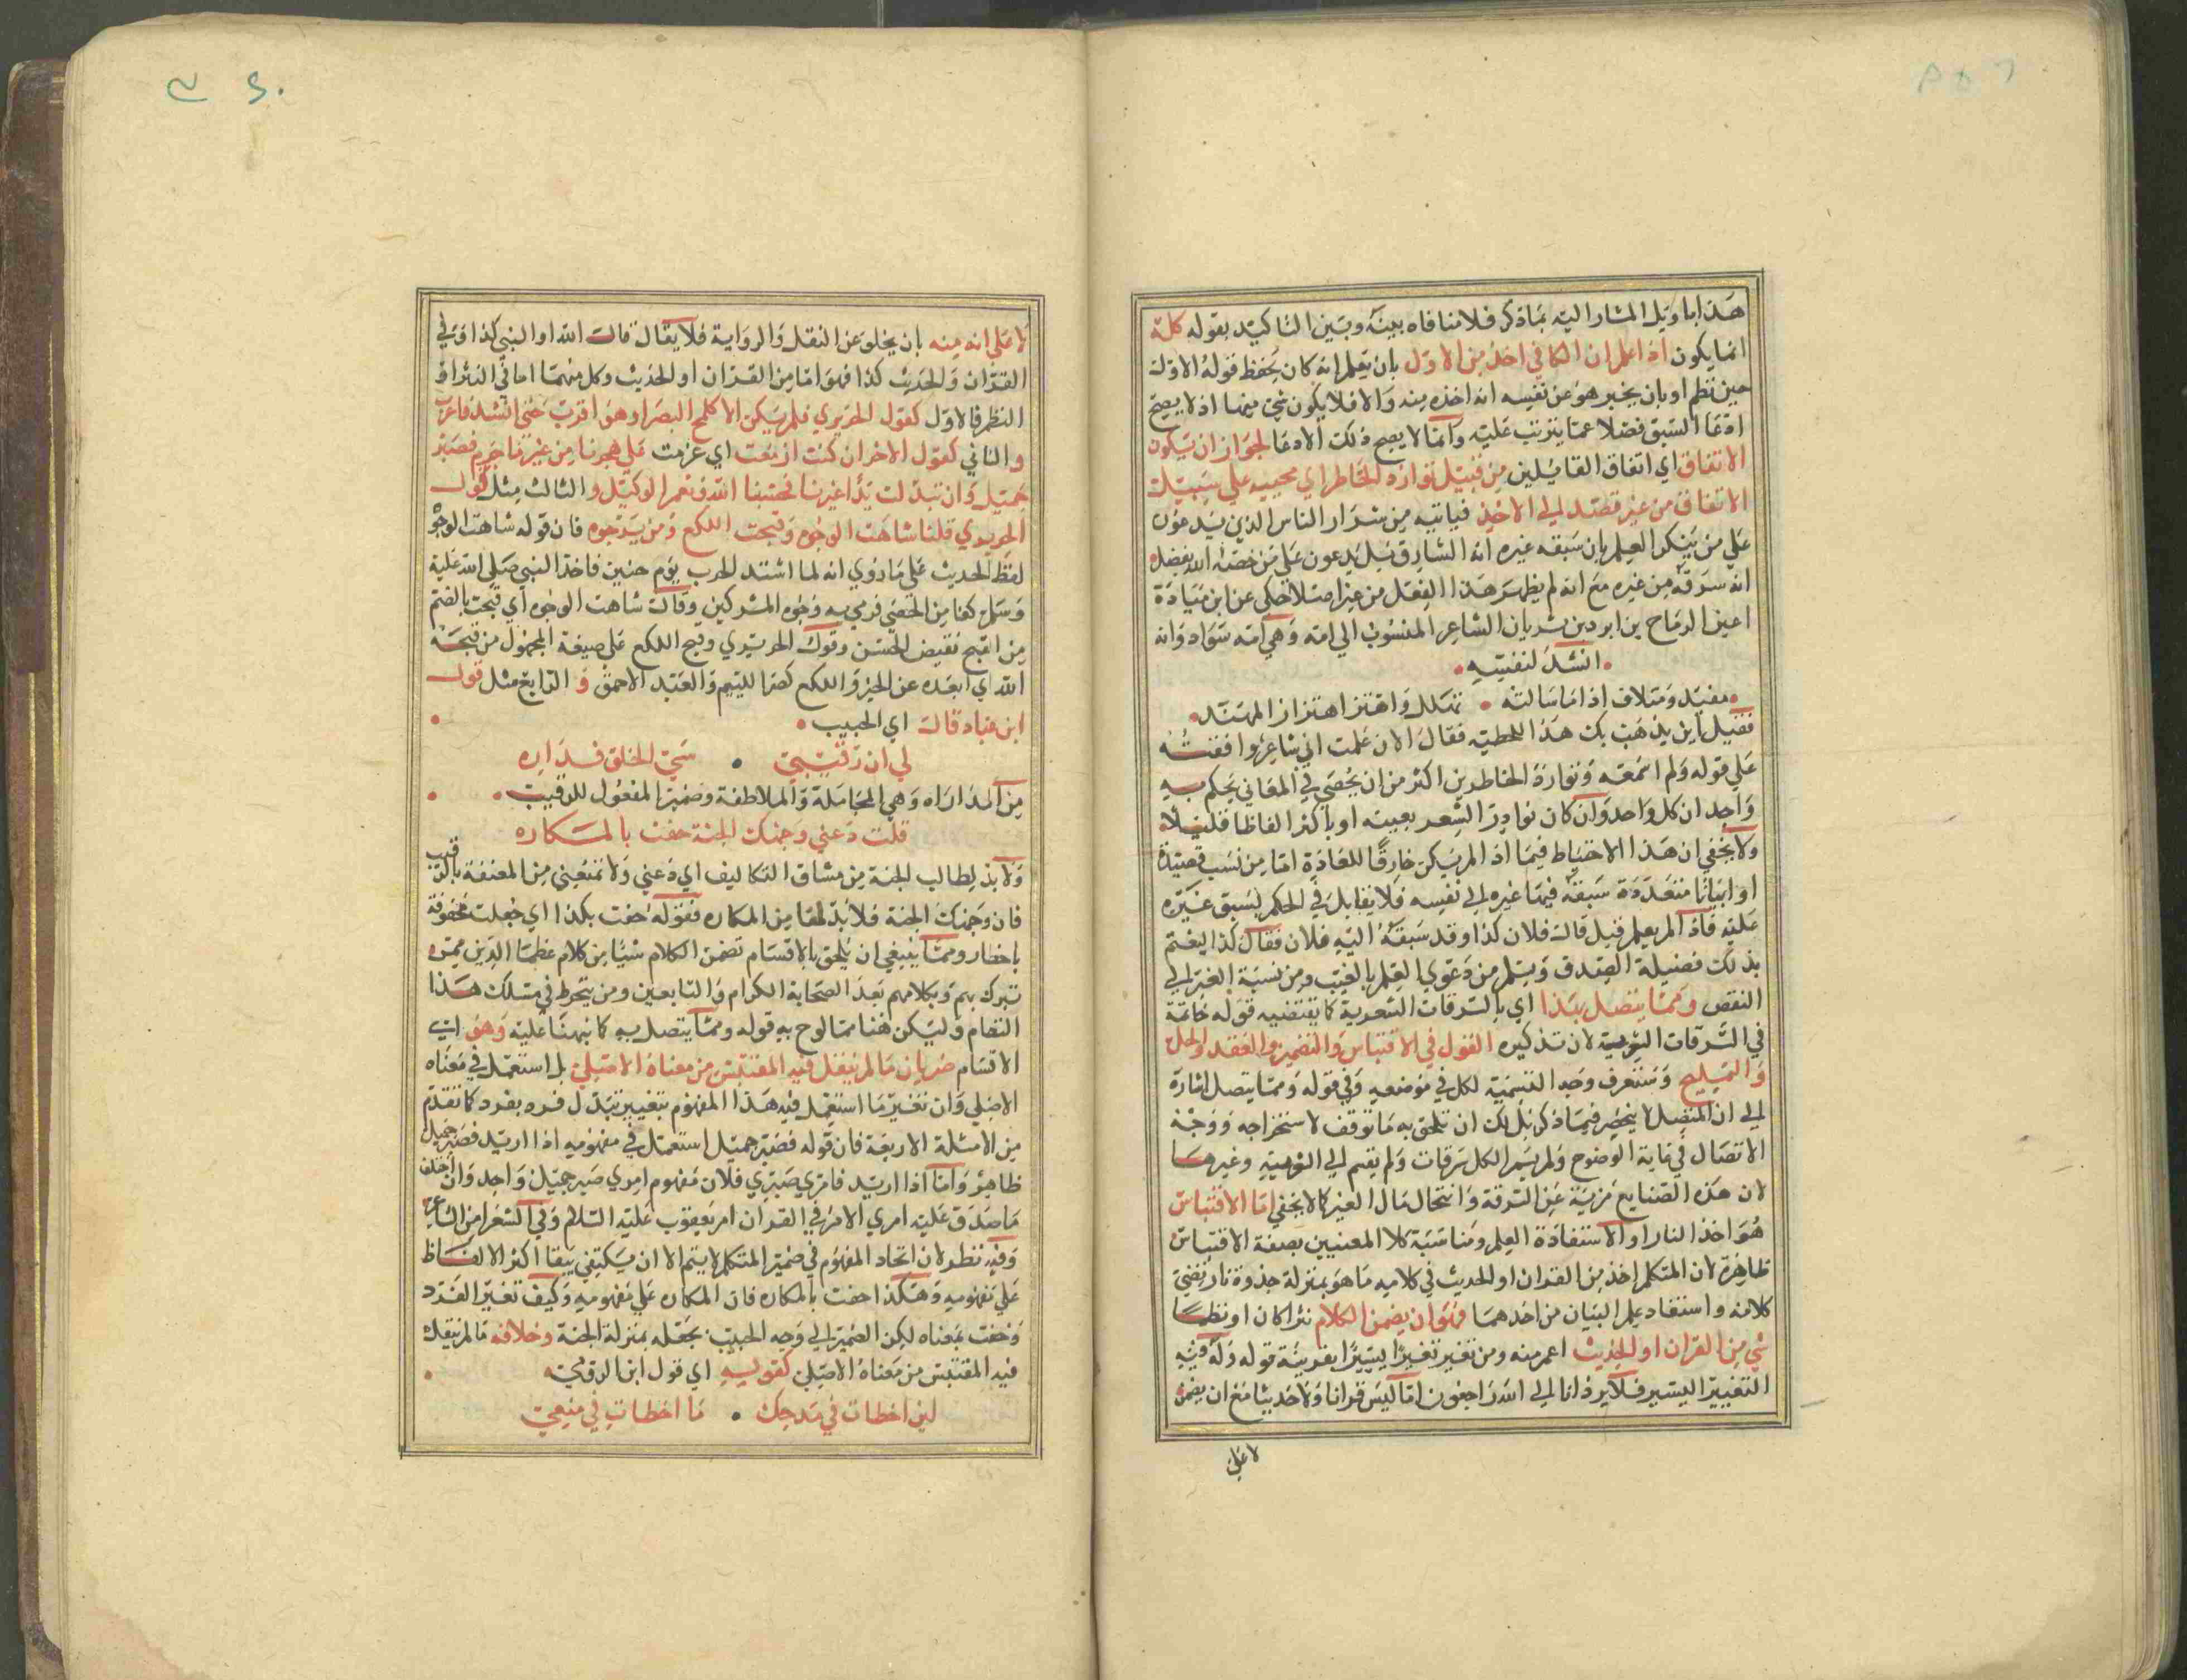 هذا بتاويل المشار اليه بما ذكر فلا منافاه بينه وبين التاكيد بقوله كله
انما يكون اذا علم ان الثاني اخذ من الاول بان يعلم انه كان يحفظ قول الاول
حين نظم او بان يخبر هو عن نفسه انه اخذه منه والا فلا يكون شي منهما اذ لا يصح
ادعا السبق فضلا عما يترتب عليه وانما لا يصح ذلك الادعا لجواز ان يكون
الاتفاق اي اتفاق القايلين من قبيل توارد الخاطر اي مجييه علي سبيل
الاتفاق من غير قصد الي الاخذ فيانه من شرار الناس الذين يدعون
علي من ينكر العلم بان سبقه غيره انه السارق بل يدعون علي من خصه الله بفضله
انه سرقه من غيره مع انه لم يظهر هذا الفعل من غير اصلا حكي عن ابن ميادة
اعني الرماح بن ابرد بن شريان الشاعر المنسوب الي امه وهي امه سوداد وانه
انشد لنفسه
مفيد ومتلاف اذا ما سالته تهلل واهتز اهتزاز المهند
فقيل اين يذهب بك هذا للحطيه فقال الان علمت اني شاعر وافقته
علي قوله ولم اسمعه وتوارد الخاطرين اكثر من ان يحصي في المعاني يحكم به
واجد ان كل واحد وان كان نوادر الشعر بعينه او باكثر الفاظا قليلا
ولا يخفي ان هذا الاحتياط فيما اذا لم يكن خارقا للعادة اما من نسب قصيدة
او ابياتا متعددة سبقه فيها غيره الي نفسه فلا يقابل في الحكم لسبق غيره
عليه فاذا لم يعلم قيل قال فلان كذا وقد سبقه اليه فلان فقال كذا ليغتم
بذلك فضيلة الصدق ويسلم من دعوي العلم بالغيب ومن نسبة الغير الي
النقص ومما يتصل بهذا اي بالسرقات الشعرية كما يقتضيه قوله خاتمة
في السرقات الشعرية لان تذكيره القول في الاقتباس والتضمين والعقد والحل
والتمليح وستعرف وجه التسمية لكل في موضعه وفي قوله ومما يتصل اشارة
الي ان المتصل لا ينحصر فيما ذكر بل لك ان تلحق به ما توقف لاستخراجه ووجه
الاتصال في غاية الوضوح ولم يسم الكل سرقات ولم يقسم الي الشعرية وغيرها
لان هذه الصنايع مزية عن السرقة وانتحال مال الغير كما لا يخفي اما الاقتباس
هو اخذ النار او الاستفادة العلم ومناسبة كلا المعنيين بصفة الاقتباس
ظاهرة لان المتكلم اخذ من القران او الحديث في كلامه ما هو بمنزلة جذوة نار تضئ
كلامه واستفاد علم البيان من احدهما فهو ان يضمن الكلام نثرا كان او نظما
شي من القران او الحديث اعم منه ومن تغير تغيرا يسيرا بقرينة قوله وله فيه
التغيير اليسير فلا يرد انا الي الله راجعون اما ليس قرانا ولا حديثا مع ان يضمن
لا علي
لا علي انه منه بان يخلو عن النقل والرواية فلا يقال قال الله او النبي كذا وفي
القران والحديث كذا فهو اما من القران او الحديث وكل منهما اما في النثر او
النظم فالاول كقول الحريري فلم يكن الا كلمح البصر او هو اقرب حتي انشد فاغرب
والثاني كقول الاخر ان كنت ازمعت اي عزمت علي هجرنا من غير ما جرم فصبر
جميل وان تبدلت بنا غيرنا فحسبنا الله ونعم الوكيل والثالث مثل قول
الحريري قلنا شاهت الوجوه وقبحت اللكع ومن يرجوه فان قوله شاهت الوجو
لفظ الحديث علي ما روي انه لما اشتد الحرب يوم حنين فاخذ النبي صلي الله عليه
وسلم كفا من الحصي فرمي به وجوه المشركين وقال شاهت الوجوه اي قبحت بالضم
من القبح نقيض الحسن وقول الحريري وقبح اللكع علي صيغة المجهول من قبحه
الله اي ابعده عن الخير واللكع كصرد اللييم والعبد الاحمق و الرابع مثل قول
ابن عباد قال اي الحبيب
لي ان رقيبي سئ الخلق فداره
من المداراه وهي المجاملة والملاطفة وضمير المفعول للرقيب
قلت دعني وجهك الجنة حفت بالمكاره
ولا بد لطالب الجنة من مشاق التكاليف اي دعني ولا تمنعيني من المعنفة بالرقيب
فان وجهك الجنة فلا بد لها من المكاره فقوله حفت بكذا اي جعلت محفوفة
باخطار ومما ينبغي ان يلحق بالاقسام تضمن الكلام شيا من كلام عظما الدين ممن
تبرك بهم وبكلامهم بعد الصحابة الكرام والتابعين ومن ينخرط في مسلك هذا
النظام وليكن هنا مما لوح به قوله ومما يتصل به كما نبهنا عليه وهو اي
الاقسام ضربان ما لم ينقل فيه المقتبس من معناه الاصلي بل استعمل في معناه
الاصلي وان تغير ما استعمل فيه هذا المفهوم بتغيير تبدل فرد بفرد كما تقدم
من الامثلة الاربعة فان قوله فصبر جميل استعمل في مفهومه اذا اريد فصبر جميل
ظاهر واما اذا اريد فامري صبري فلان مفهوم امري صبر جميل واحد وان اختلف
ما صدق عليه امري الامر في القران امر يعقوب عليه السلام وفي الشعر امر الشاعر
وفيه نظر لان اتحاد المفهوم في ضمير المتكلم لا يتم الا ان يكتفي ببقا اكثر الالفاظ
علي مفهومه وهكذا حفت بالمكاره فان المكاره علي مفهومه وكيف تغير الفرد
وحفت بمعناه لكن الضمير الي وجه الحبيب بجعله بمنزلة الجنة وخلافه ما لم ينقل
فيه المقتبس من معناه الاصلي كقوله اي قول ابن الرومي
لين اخطات في مدحك ما اخطات في منعي